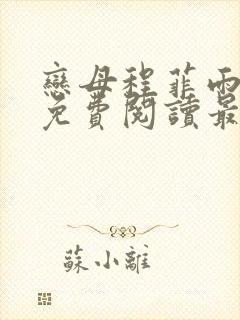 戀母程菲雨
免費閱讀最
蘇小離